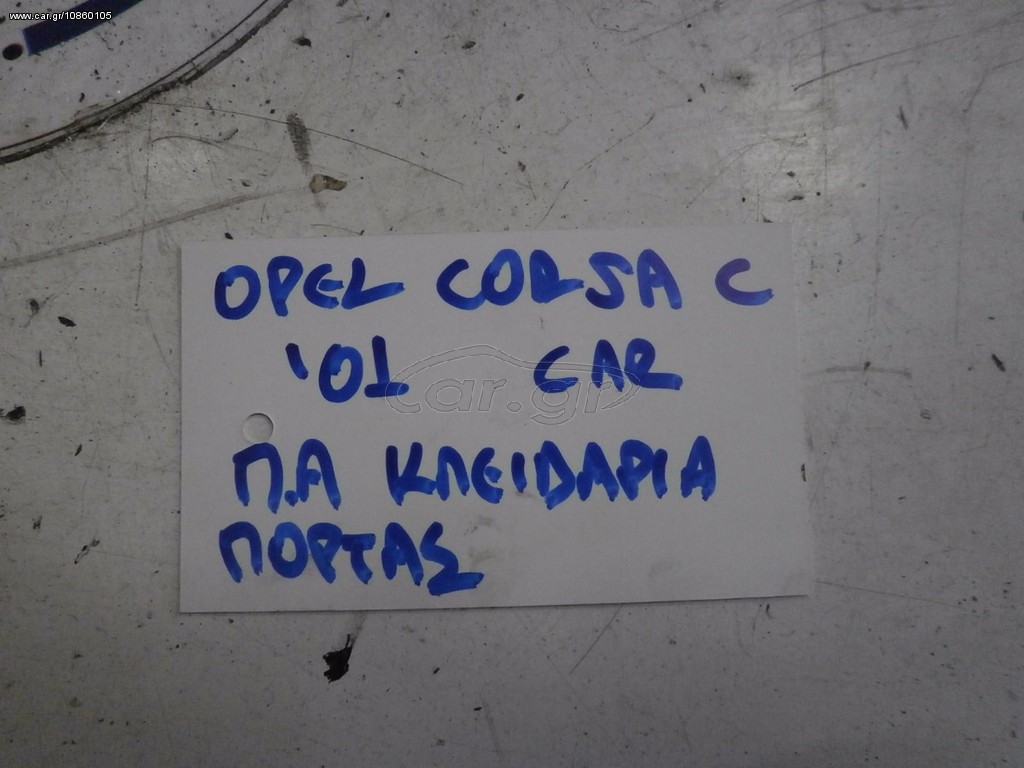 www.car.gr/10860105
OPEL CORSA C
'01 CAR
car.gr
Π.Α ΚΛΕΙΔΑΡΙΑ
ΠΟΡΤΑΣ